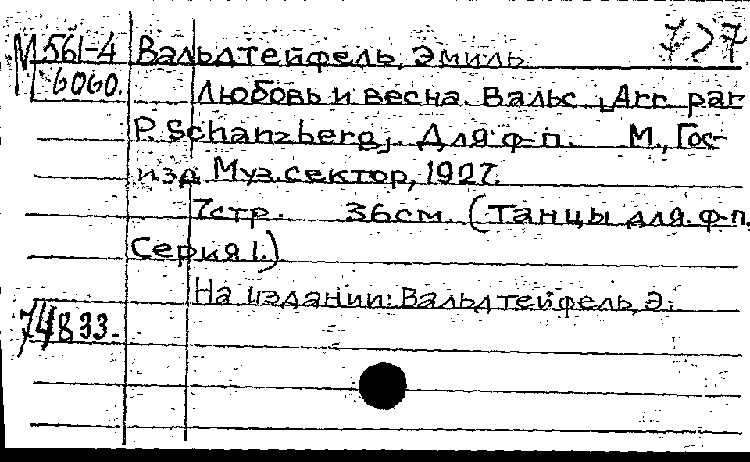 М 561-4 Вальдтейфель, Эмиль 727
6060. Любовь и весна. Вальс. [Arr. par
P. Schanzberg]. Для ф-п. М., Гос-
изд. Муз. сектор, 1927.
7 стр. 36 см. (Танцы для ф-п.
Серия I.)
На издании: Вальдтейфель, Э.
74833.